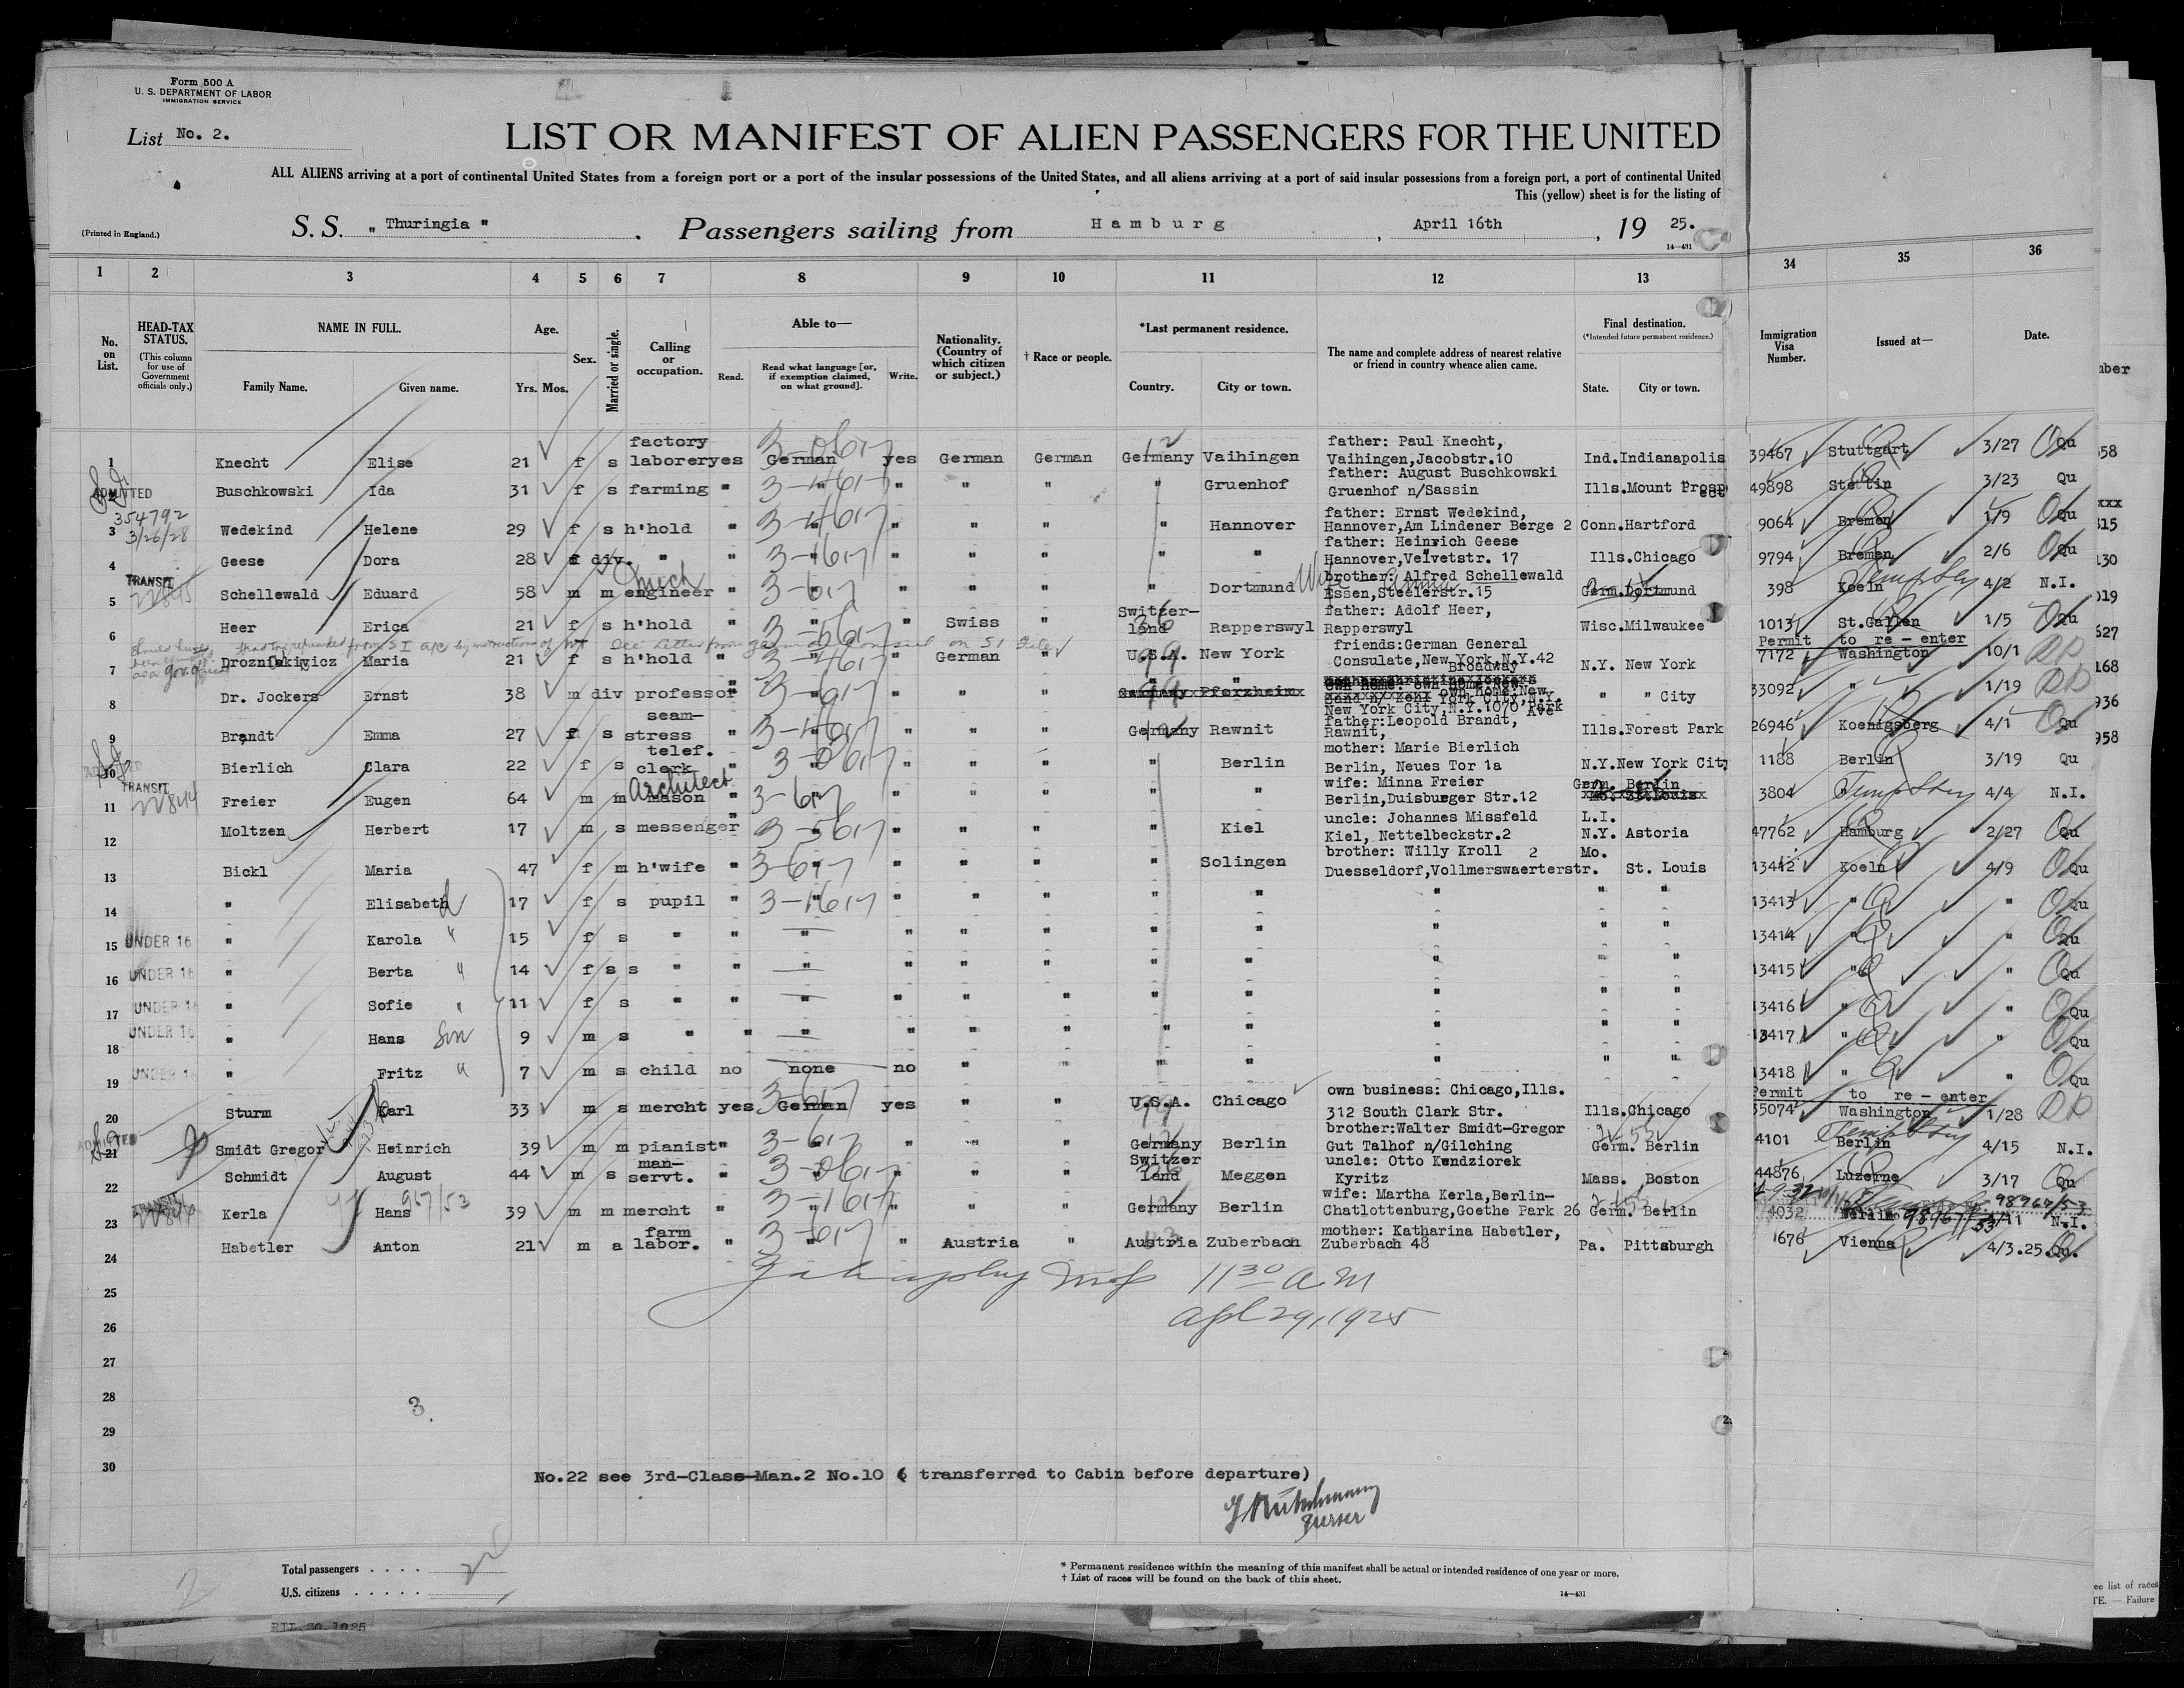 Form 500 A
U. S. DEPARTMENT OF LABOR
IMMIGRATION SERVICE
List No. 2.
LIST OR MANIFEST OF ALIEN PASSENGERS FOR THE UNITED
ALL ALIENS arriving at a port of continental United States from a foreign port or a port of the insular possessions of the United States, and all aliens arriving at a port of said insular possessions from a foreign port, a port of continental United
This (yellow) sheet is for the listing of
(Printed in England.) S. S. " Thuringia " . Passengers sailing from Hamburg , April 16th , 19 25.
14—431
1 2 3 4 5 6 7 8 9 10 11 12 13 34 35 36
No. on List.
HEAD-TAX STATUS.
(This column for use of Government officials only.)
NAME IN FULL.
Family Name. Given name.
Age.
Yrs. Mos.
Sex.
Married or single.
Calling or occupation.
Able to—
Read. Read what language [or, if exemption claimed, on what ground]. Write.
Nationality. (Country of which citizen or subject.)
† Race or people.
*Last permanent residence.
Country. City or town.
The name and complete address of nearest relative or friend in country whence alien came.
Final destination.
(*Intended future permanent residence.)
State. City or town.
Immigration Visa Number.
Issued at—
Date.
1 Knecht Elise 21 f s factory laborer yes German yes German German Germany Vaihingen father: Paul Knecht, Vaihingen,Jacobstr.10 Ind. Indianapolis 39467 Stuttgart 3/27 Qu
2 ADMITTED Buschkowski Ida 31 f s farming " " " " " " Gruenhof father: August Buschkowski Gruenhof n/Sassin Ills. Mount Prospect 49898 Stettin 3/23 Qu
3 354792 3/26/28 Wedekind Helene 29 f s h'hold " " " " " " Hannover father: Ernst Wedekind, Hannover,Am Lindener Berge 2 Conn. Hartford 9064 Bremen 1/9 Qu
4 Geese Dora 28 f div. " " " " " " " " father: Heinrich Geese Hannover,Velvetstr. 17 Ills. Chicago 9794 Bremen 2/6 Qu
5 TRANSIT Schellewald Eduard 58 m m engineer " " " " " " Dortmund brother: Alfred Schellewald Essen,Steelerstr.15 Germ. Dortmund 398 Koeln 4/2 N.I.
6 Heer Erica 21 f s h'hold " " " Swiss " Switzer-land Rapperswyl father: Adolf Heer, Rapperswyl Wisc. Milwaukee 1013 St.Gallen 1/5 Qu
7 Maria 21 f s h'hold " " " German " U.S.A. New York friends:German General Consulate,New York,N.Y.42 Broadway N.Y. New York Permit to re-enter 7172 Washington 10/1
8 Dr. Jockers Ernst 38 m div professor " " " " " " " New York City,N.Y.1070 Park Ave " " City 33092 " 1/19
9 Brandt Emma 27 f s seam-stress " " " " " Germany Rawnit father:Leopold Brandt, Rawnit, Ills. Forest Park 26946 Koenigsberg 4/1 Qu
10 Bierlich Clara 22 f s telef. clerk " " " " " " Berlin mother: Marie Bierlich Berlin, Neues Tor 1a N.Y. New York City 1188 Berlin 3/19 Qu
11 TRANSIT Freier Eugen 64 m m Architect mason " " " " " " " wife: Minna Freier Berlin,Duisburger Str.12 Germ. Berlin 3804 4/4 N.I.
12 Moltzen Herbert 17 m s messenger " " " " " " Kiel uncle: Johannes Missfeld Kiel, Nettelbeckstr.2 L.I. N.Y. Astoria 47762 Hamburg 2/27 Qu
13 Bickl Maria 47 f m h'wife " " " " " " Solingen brother: Willy Kroll 2 Duesseldorf,Vollmerswaerterstr. Mo. St. Louis 13412 Koeln 4/9 Qu
14 " Elisabeth 17 f s pupil " " " " " " " " " " 13413 " " Qu
15 UNDER 16 " Karola 15 f s " " " " " " " " " " " 13414 " " Qu
16 UNDER 16 " Berta 14 f s s " " " " " " " " " " " 13415 " " Qu
17 UNDER 16 " Sofie 11 f s " " " " " " " " " " " 13416 " " Qu
18 UNDER 16 " Hans Son 9 m s " " " " " " " " " " " 13417 " " Qu
19 UNDER 16 " Fritz " 7 m s child no none no " " " " " " " 13418 " Qu
20 Sturm Karl 33 m s mercht yes German yes " " U.S.A. Chicago own business: Chicago,Ills. 312 South Clark Str. Ills. Chicago Permit to re-enter 35074 Washington 1/28
21 ADMITTED Smidt Gregor Heinrich 39 m m pianist " " " " " Germany Berlin brother:Walter Smidt-Gregor Gut Talhof n/Gilching Germ. Berlin 4101 Berlin 4/15 N.I.
22 Schmidt August 44 m s man-servt. " " " " " Switzer land Meggen uncle: Otto Kundziorek Kyritz Mass. Boston 44876 Luzerne 3/17 Qu
23 TRANSIT Kerla Hans 39 m m mercht " " " " " Germany Berlin wife: Martha Kerla,Berlin-Chatlottenburg,Goethe Park 26 Germ. Berlin 4032 Berlin 98967/53 N.I.
24 Habetler Anton 21 m a farm labor. " " " Austria " Austria Zuberbach mother: Katharina Habetler, Zuberbach 48 Pa. Pittsburgh 1676 Vienna 4/3.25. Qu.
25 11 30 A.M
26 Apl 29, 1925
27
28 3.
29
30
No.22 see 3rd-Class-Man.2 No.10 ( transferred to Cabin before departure)
Purser
Total passengers . . . .
U.S. citizens . . . . .
* Permanent residence within the meaning of this manifest shall be actual or intended residence of one year or more.
† List of races will be found on the back of this sheet.
14—431